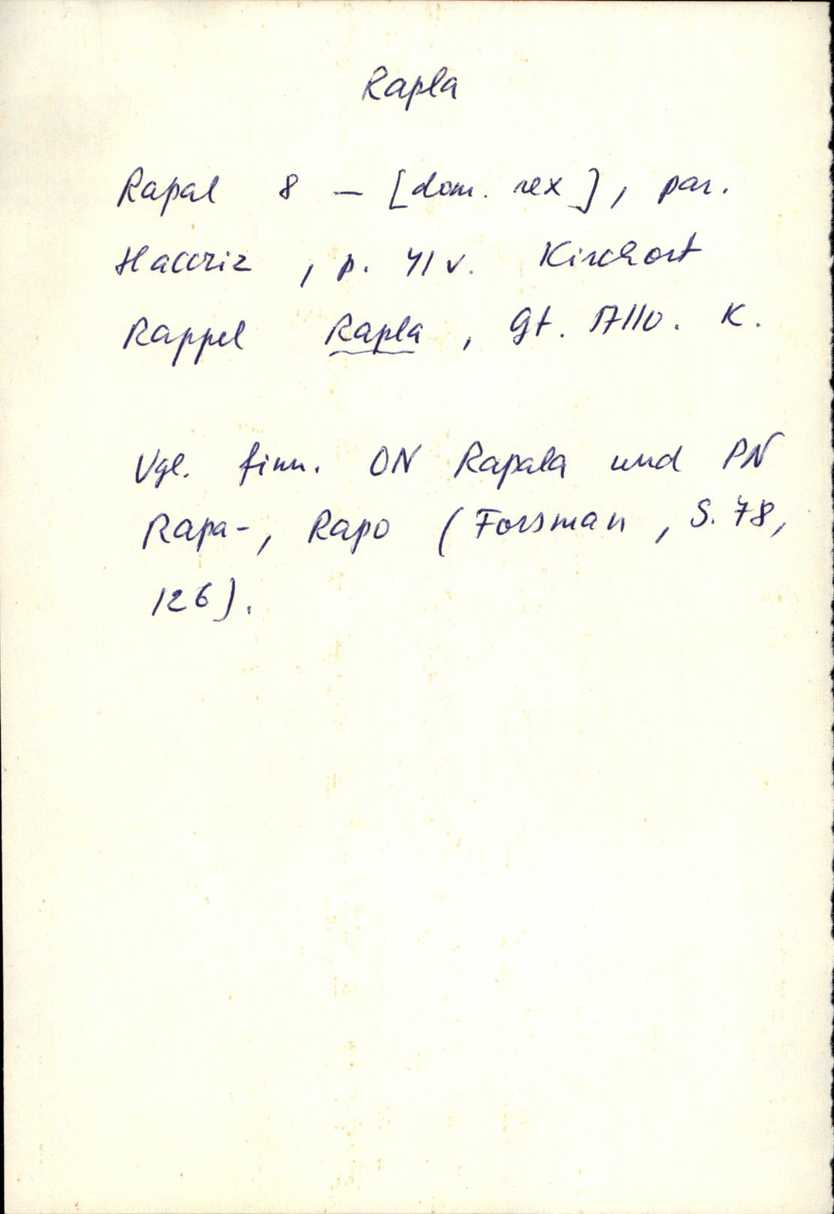 Rapla
Rapal 8 – [dom. rex], par.
Haccriz, p. 41 v. Kirchort
Rappel Rapla, Gt. 17110. K.
Vgl. finn. ON Rapala und PN
Rapa-, Rapo (Forsman, S. 78,
126).